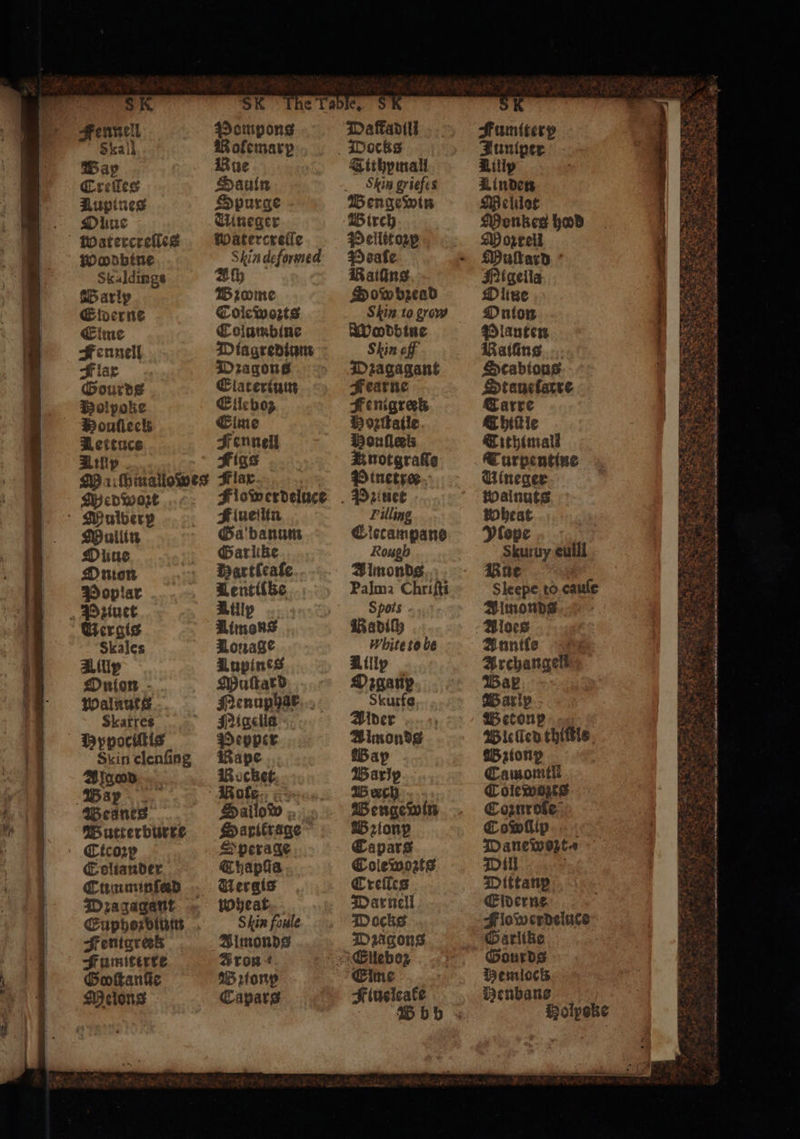 SK
Fennell
Skall
Bay
Cresses
Lupines
Oliue
Watercresses
Woodbine
Skaldings
Barly
Elderne
Elme
Fennell
Flax
Gourds
Holyoke
Housleek
Lettuce
Lilly
Marshmallowes
Medwort
Mulbery
Mullin
Oliue
Onion
Poplar
Priuet
Vergis
Skales
Lilly
Onion
Walnuts
Skarres
Hypocistis
Skin clensing
Bay
Beanes
Butterburre
Cicory
Coliander
Cumminseed
Dragagant
Euphorbium
Fenigreek
Fumiterre
Melons
SK The Table,
Pompons
Rosemary
Rue
Sauin
Spurge
Vineger
Watercresse
Skin deformed
Ash
Broome
Coleworts
Columbine
Diagredium
Dragons
Elaterium
Ellebor
Elme
Fennell
Figs
Flax
Flowerdeluce
Fiuefin
Galbanum
Garlike
Hartsease
Lentilke
Lilly
Limons
Louage
Lupines
Mustard
Nenuphar
Nigella
Pepper
Rape
Rocket
Rose
Sallow
Saxifrage
Sperage
Thapsia
Vergis
Wheat
Skin foule
Almonds
Aron
Briony
Capars
SK
Daffadill
Docks
Tithymall
Skin griefes
Bengewin
Birch
Pellitory
Pease
Raisins
Sowbread
Skin to grow
Woodbine
Skin off
Dragagant
Fearne
Fenigreek
Horstaile
Housleek
Knotgrasse
Pinetree
Priuet
Pilling
Elecampane
Rough
Almonds
Palma Christi
Spots
Radish
White to be
Lilly
Organy
Skurfe
Alder
Almonds
Bay
Barly
Beech
Bengewin
Briony
Capars
Coleworts
Cresses
Darnell
Docks
Dragons
Ellebor
Elme
Fiueleafe
Bbb
SK
Fumitery
Juniper
Lilly
Linden
Melilot
Monkes hood
Morrell
Mustard
Nigella
Oliue
Onion
Planten
Raisins
Scabious
Stauesacre
Tarre
Thistle
Tithimall
Turpentine
Vineger
Walnuts
Wheat
Ysope
Skuruy euill
Rue
Sleepe to cause
Almonds
Aloes
Annise
Archangell
Bay
Barly
Betony
Blessed thistle
Briony
Camomill
Coleworts
Cornrose
Cowslip
Danewort
Dill
Dittany
Elderne
Flowerdeluce
Garlike
Gourds
Hemlock
Henbane
Holyoke